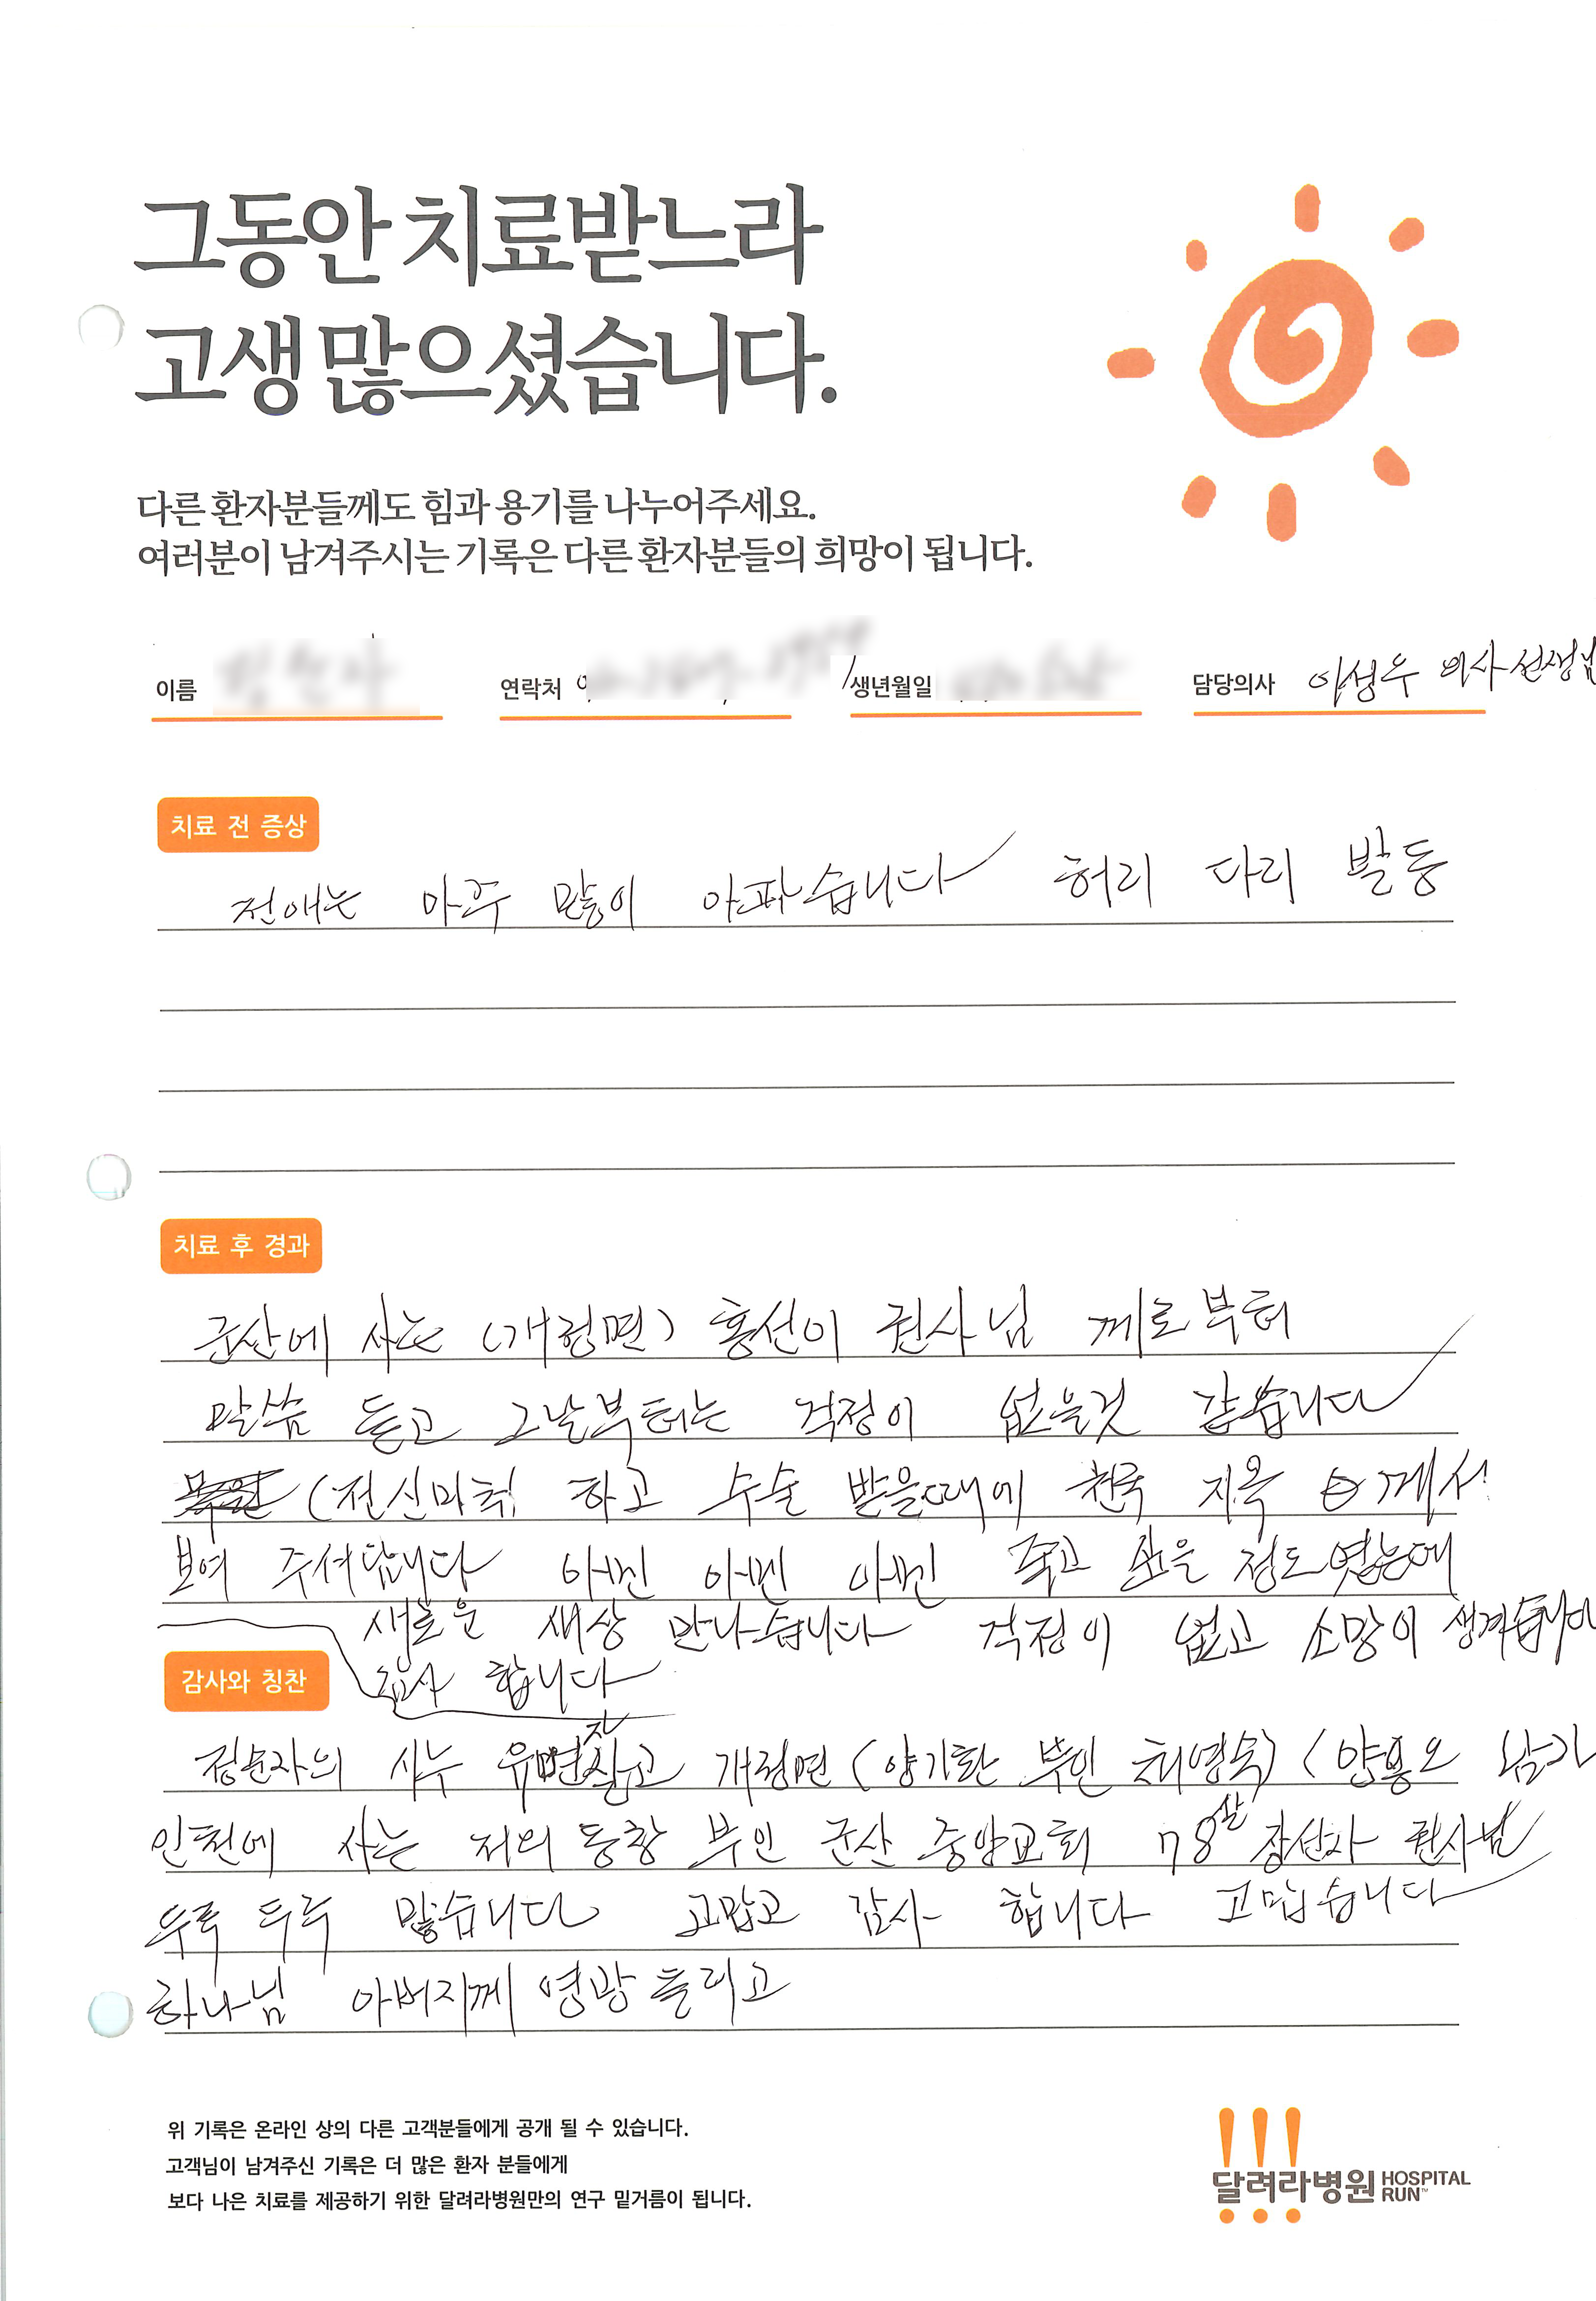 그동안 치료받느라
고생 많으셨습니다.
다른 환자분들께도 힘과 용기를 나누어주세요.
여러분이 남겨주시는 기록은 다른 환자분들의 희망이 됩니다.
이름 연락처 생년월일 담당의사 이성우 의사선생님
치료 전 증상
전애는 아주 많이 아파습니다 허리 다리 발등
치료 후 경과
군산에 사는 (개정면) 홍선이 권사님 께로부터
말씀 듣고 그날부터는 걱정이 없을것 갑습니다
(전신마취 하고 수술 받을때에 천국 지옥 께서
보여 주셔답니다 아멘 아멘 아멘 죽고 싶은 정도였는데
새로운 새상 만나습니다 걱정이 없고 소망이 생겨습니다
감사 합니다
감사와 칭찬
정순자의 시누 개정면 (양기환 부인 최영숙) (양흥오
인천에 사는 저의 동창 부인 군산 중앙교회 78살 장선자 권사님
두루 두루 많습니다 고맙고 감사 합니다 고맙습니다
하나님 아버지께 영광 돌리고
위 기록은 온라인 상의 다른 고객분들에게 공개 될 수 있습니다.
고객님이 남겨주신 기록은 더 많은 환자 분들에게
보다 나은 치료를 제공하기 위한 달려라병원만의 연구 밑거름이 됩니다.
달려라병원 HOSPITAL RUN™